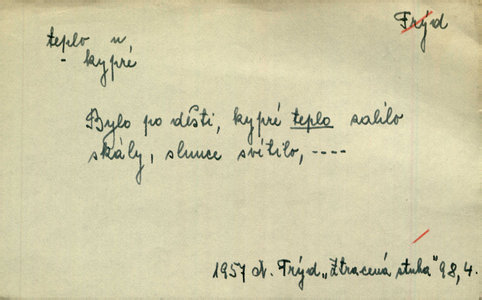 Frýd
teplo n
- kypré
Bylo po děšti, kypré teplo salilo
skály, slunce svítilo, ----
1957 N. Frýd „Ztracená stuha" 98,4.